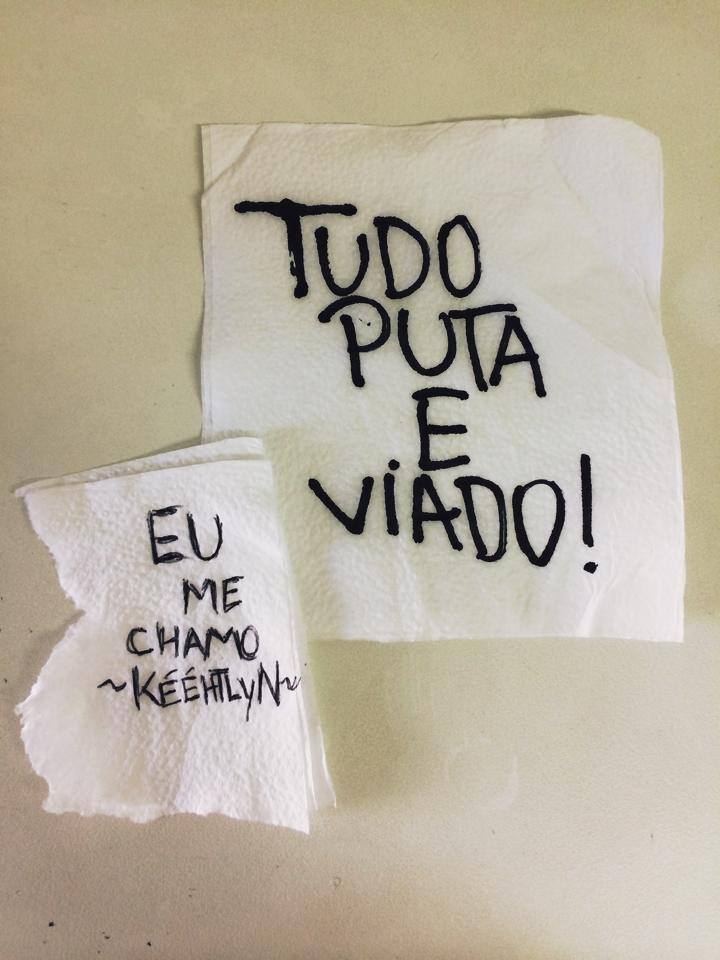 TUDO
PUTA
E
ViADO!
EU
ME
CHAMO
~KÉÉHTLyN~